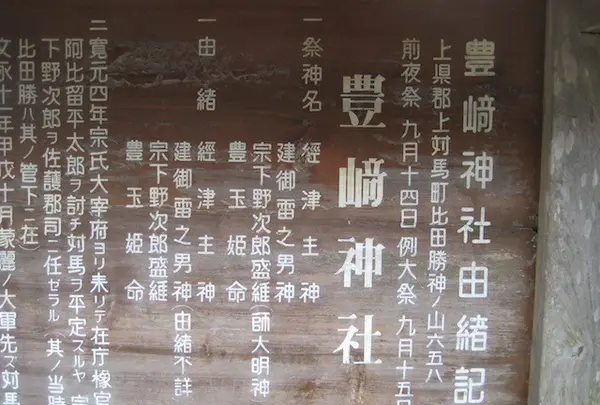 豊﨑神社由緒記
上県郡上対馬町比田勝神ノ山六五八
前夜祭 九月十四日 例大祭 九月十五日
豊﨑神社
一祭神名 經津主神
建御雷之男神
宗下野次郎盛維(師大明神
豊玉姫命
一由緒 經津主神
建御雷之男神(由緒不詳
宗下野次郎盛維
豊玉姫命
二寛元四年宗氏大宰府ヨリ来リテ在庁橡官
阿比留平太郎ヲ討チ対馬ヲ平定スルヤ宗
下野次郎ヲ佐護郡司ニ任ゼラル(其ノ当時
比田勝ハ其ノ管下ニ在)
文永十一年甲戊十月蒙麗ノ大軍先ズ対馬